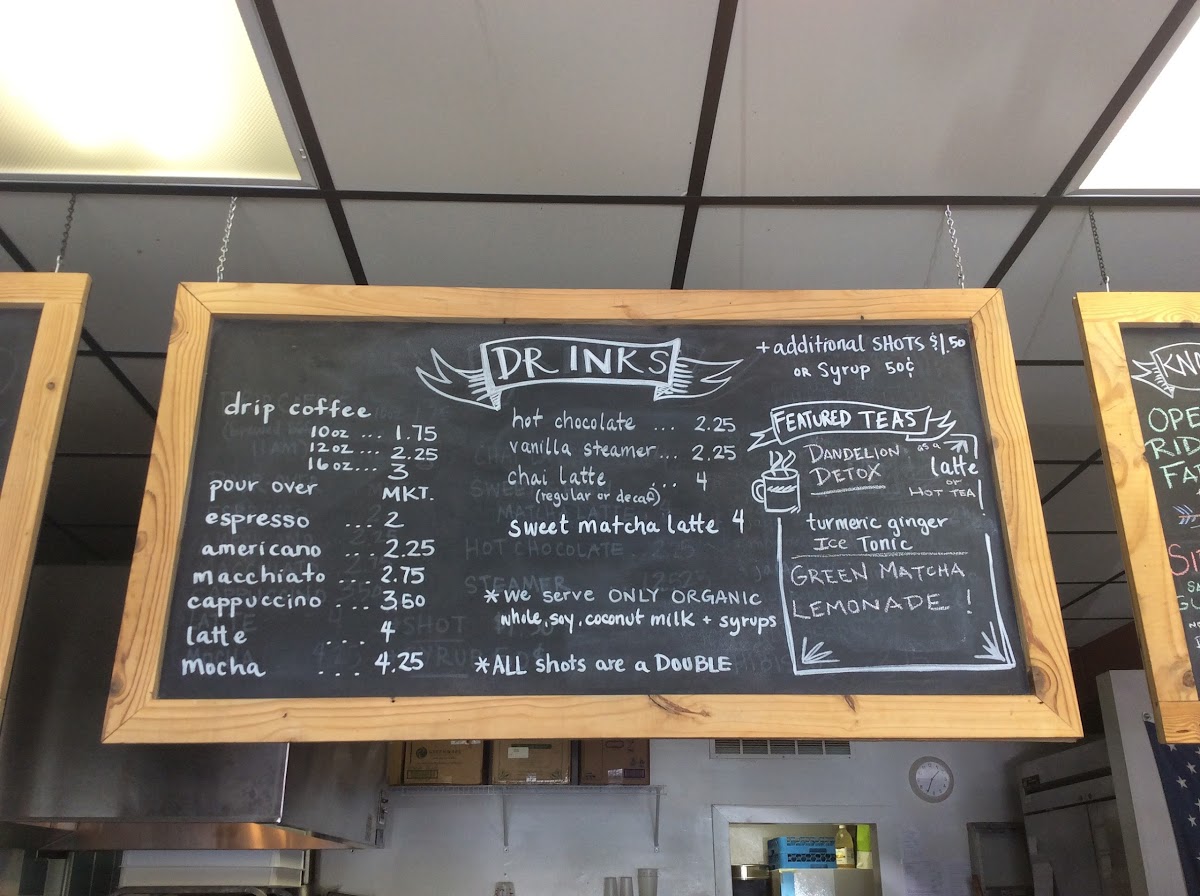 DRINKS
+ additional SHOTS $1.50
OR Syrup 50¢
drip coffee
10oz ... 1.75
12oz ... 2.25
16oz ... 3
pour over MKT.
espresso ... 2
americano ... 2.25
macchiato ... 2.75
cappuccino ... 3.50
latte ... 4
mocha ... 4.25
hot chocolate ... 2.25
vanilla steamer ... 2.25
chai latte ... 4
(regular or decaf)
sweet matcha latte 4
*we serve ONLY ORGANIC
whole, soy, coconut milk + syrups
*ALL shots are a DOUBLE
FEATURED TEAS
DANDELION
DETOX
as a
latte
or
HOT TEA
turmeric ginger
ICE TONIC
GREEN MATCHA
LEMONADE !
HOT CHOCOLATE
STEAMER
OPE
RID
FA